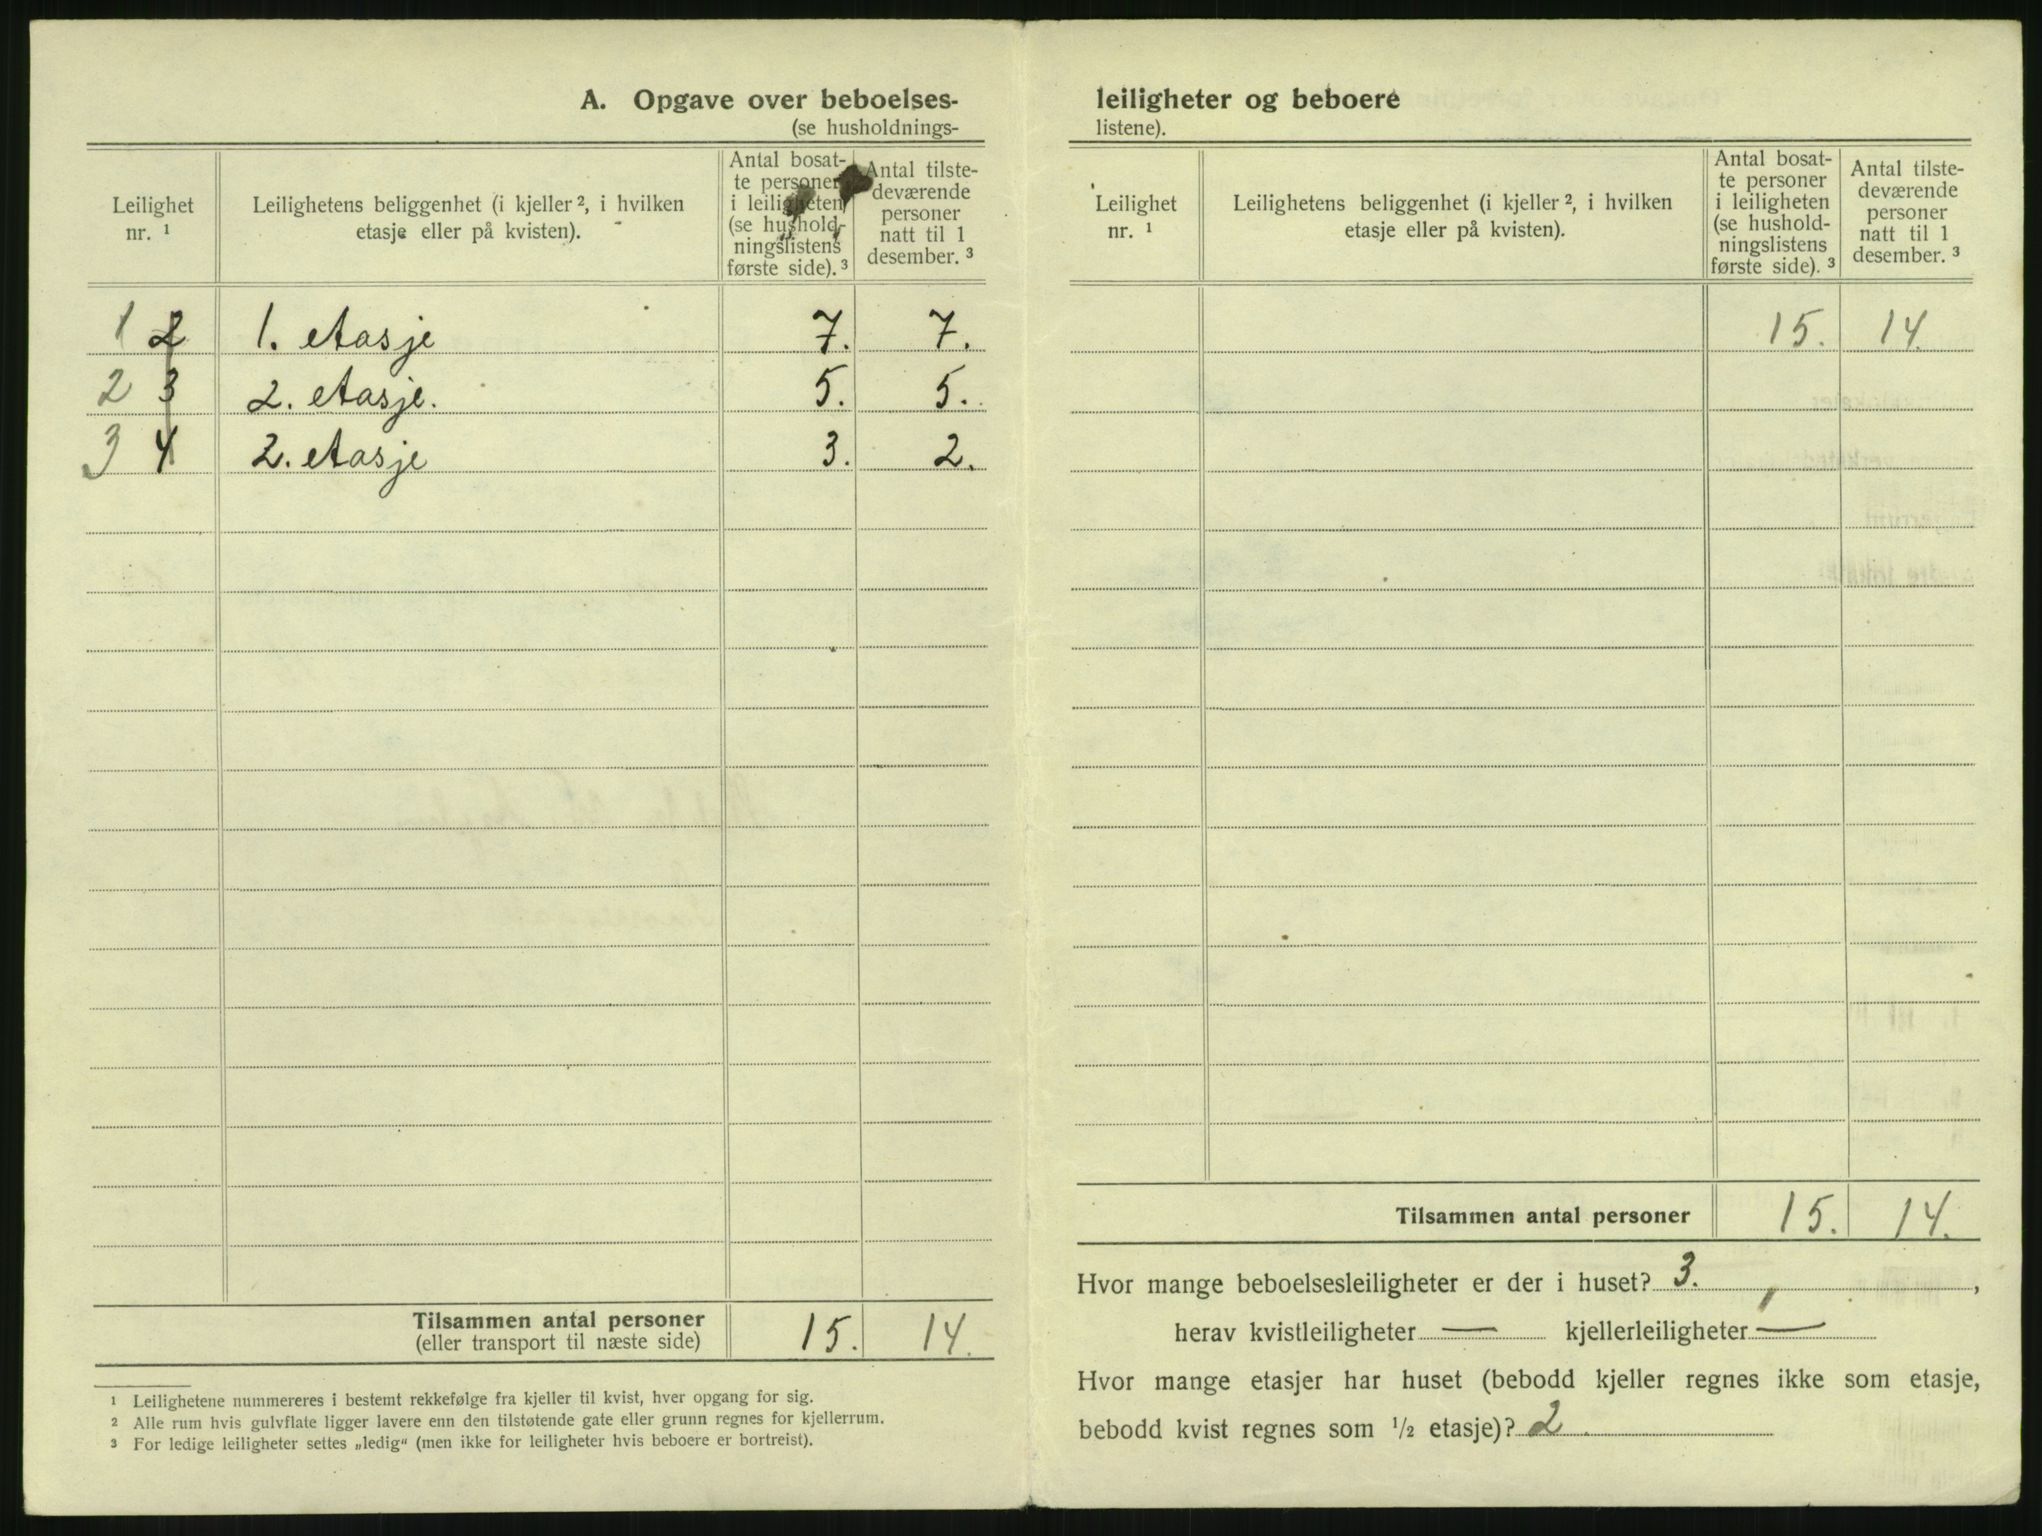 A. Opgave over beboelses-
(se husholdnings-
Leilighet
nr. ¹
Leilighetens beliggenhet (i kjeller ², i hvilken
etasje eller på kvisten).
Antal bosat-
te personer
i leiligheten
(se hushold-
ningslistens
første side). ³
Antal tilste-
deværende
personer
natt til 1
desember. ³
1 2 1. etasje 7. 7.
2 3 2. etasje. 5. 5.
3 4 2. etasje 3. 2.
Tilsammen antal personer 15. 14.
(eller transport til næste side)
¹ Leilighetene nummereres i bestemt rekkefølge fra kjeller til kvist, hver opgang for sig.
² Alle rum hvis gulvflate ligger lavere enn den tilstøtende gate eller grunn regnes for kjellerrum.
³ For ledige leiligheter settes „ledig“ (men ikke for leiligheter hvis beboere er bortreist).
leiligheter og beboere
listene).
Leilighet
nr. ¹
Leilighetens beliggenhet (i kjeller ², i hvilken
etasje eller på kvisten).
Antal bosat-
te personer
i leiligheten
(se hushold-
ningslistens
første side). ³
Antal tilste-
deværende
personer
natt til 1
desember. ³
15. 14.
Tilsammen antal personer 15. 14.
Hvor mange beboelsesleiligheter er der i huset? 3. ,
herav kvistleiligheter — kjellerleiligheter —
Hvor mange etasjer har huset (bebodd kjeller regnes ikke som etasje,
bebodd kvist regnes som ½ etasje)? 2